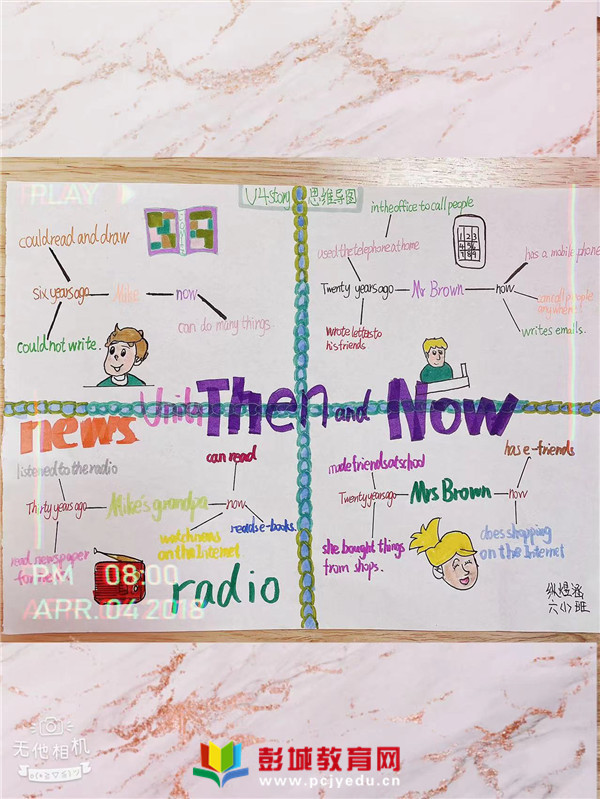 PLAY
U4story 思维导图
could read and draw
six years ago
Mike
now
could not write.
can do many things.
in the office to call people
used the telephone at home
Twenty years ago
Mr Brown
now
wrote letters to
his friends
1 2 3
4 5 6
7 8 9
has a mobile phone
can call people
anywhere
writes emails.
Unit4 Then and Now
news
listened to the radio
Thirty years ago
Mike's grandpa
now
can read
reads e-books.
watch news
on the Internet
read newspaper
radio
made friends at school
Twenty years ago
Mrs Brown
now
she bought things
from shops.
has e-friends
does shopping
on the Internet
PM 08:00
APR. 04 2018
六(1)班
无他相机
彭城教育网
www.pcjyedu.cn